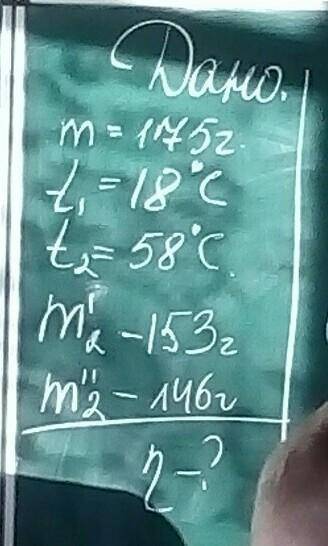 Дано.
m = 175г.
t₁ = 18°C
t₂ = 58°C.
m₂' – 153г
m₂'' – 146г
η – ?